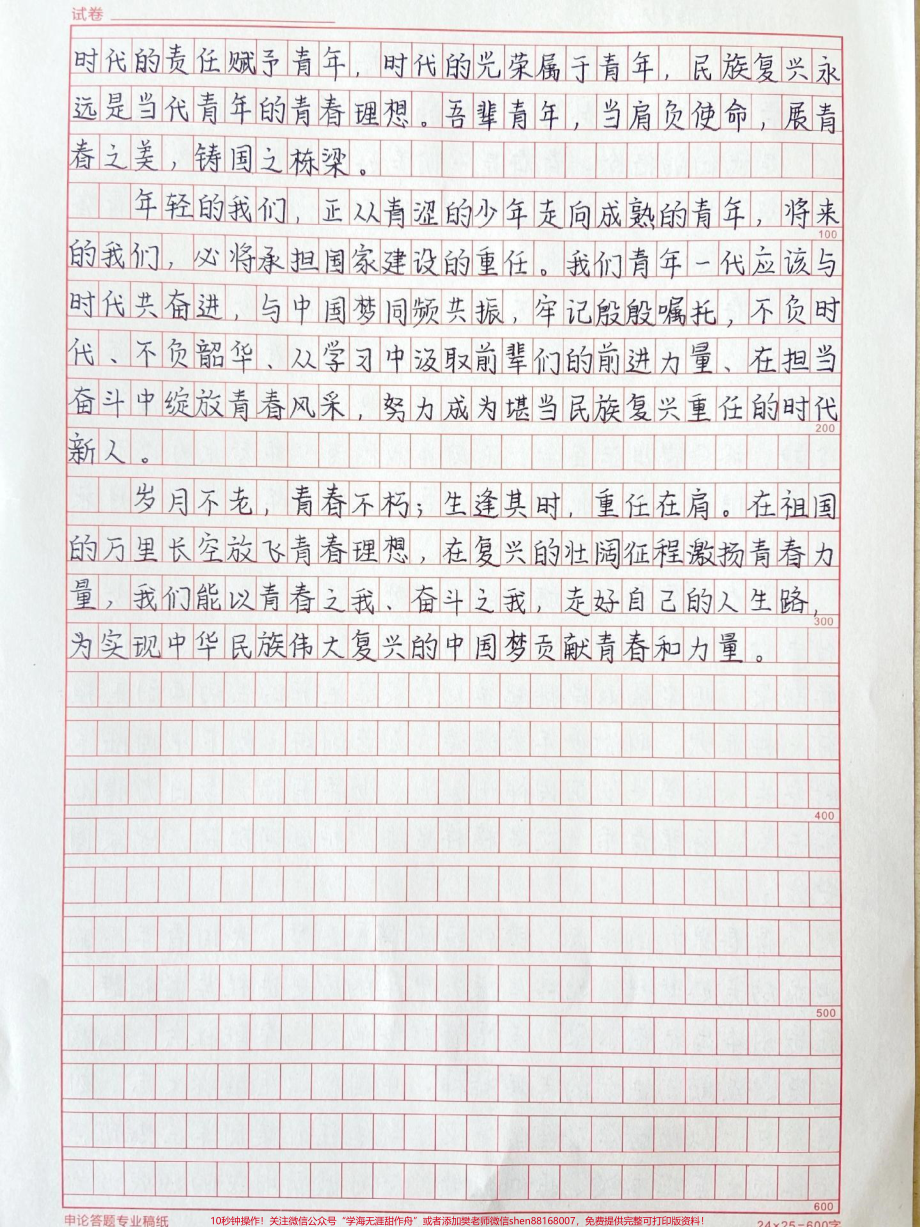 试卷
时代的责任赋予青年，时代的光荣属于青年，民族复兴永
远是当代青年的青春理想。吾辈青年，当肩负使命，展青
春之美，铸国之栋梁。
年轻的我们，正从青涩的少年走向成熟的青年，将来
100
的我们，必将承担国家建设的重任。我们青年一代应该与
时代共奋进，与中国梦同频共振，牢记殷殷嘱托，不负时
代、不负韶华、从学习中汲取前辈们的前进力量、在担当
奋斗中绽放青春风采，努力成为堪当民族复兴重任的时代
200
新人。
岁月不老，青春不朽；生逢其时，重任在肩。在祖国
的万里长空放飞青春理想，在复兴的壮阔征程激扬青春力
量，我们能以青春之我、奋斗之我，走好自己的人生路，
300
为实现中华民族伟大复兴的中国梦贡献青春和力量。
400
500
600
申论答题专业稿纸
24×25=600字
10秒钟操作！关注微信公众号“学海无涯甜作舟”或者添加樊老师微信shen88168007，免费提供完整可打印版资料！